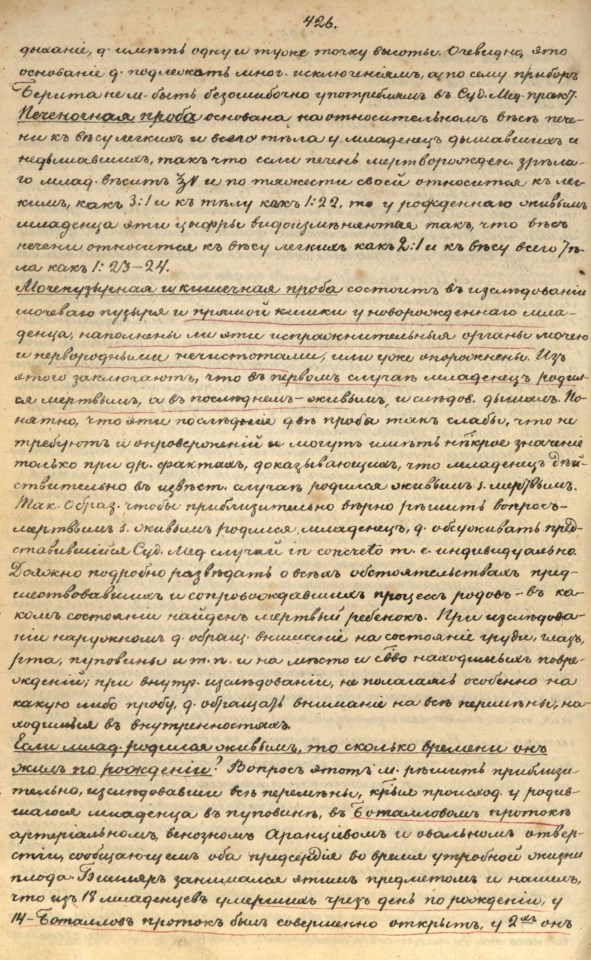 426.
дыханіе, д. имѣть одну и туже точку высоты. Очевидно, это
основаніе д. подлежать мног. исключеніямъ, а по сему приборъ
не м. быть безошибочно употребляемъ въ Суд. Мед. практ.
Печеночная проба основана на относительномъ вѣсѣ пече-
ни къ вѣсу легкихъ и всего тѣла у младенцевъ дышавшихъ и
недышавшихъ, такъ что если печень мертворожден. зрѣла-
го млад. вѣситъ и по тяжести своей относится къ лег-
кимъ, какъ 3:1 и къ тѣлу какъ 1:22, то у рожденнаго живымъ
младенца эти цыфры видоизмѣняются такъ, что вѣсъ
печени относится къ вѣсу легкихъ какъ 2:1 и къ вѣсу всего тѣ-
ла какъ 1:23-24.
Мочепузырная и кишечная проба состоитъ въ изслѣдованіи
мочеваго пузыря и прямой кишки у новорожденнаго мла-
денца, наполнены ли эти испражнительныя органы мочею
и первородными нечистотами, или уже опорожнены. Изъ
этого заключаютъ, что въ первомъ случаѣ младенецъ родил-
ся мертвымъ, а въ послѣднемъ - живымъ, и слѣдов. дышалъ. По-
нятно, что эти послѣднія двѣ пробы такъ слабы, что не
требуютъ и опроверженій и могутъ имѣть нѣкрое значеніе
только при др. фактахъ, доказывающихъ, что младенецъ дѣй-
ствительно въ извѣст. случаѣ родился живымъ s. мертвымъ.
Так. Образ. чтобы приблизительно вѣрно рѣшить вопросъ -
мертвымъ s. живымъ родился младенецъ, д. обсуживать пред-
ставившійся Суд. Мед. случай in concreto т. е. индивидуально.
Должно подробно развѣдать о всѣхъ обстоятельствахъ пред-
шествовавшихъ и сопровождавшихъ процессъ родовъ - въ ка-
комъ состояніи найденъ мертвый ребенокъ. При изслѣдова-
ніи наружномъ д. обращ. вниманіе на состояніе груди, глазъ,
рта, пуповины и т. п. и на мѣсто и св-во находимыхъ повре-
жденій; при внутр. изслѣдованіи, не полагаясь особенно на
какую либо пробу, д. обращать вниманіе на всѣ перемѣны, на-
ходимыя въ внутренностяхъ.
Если млад. родился живымъ, то сколько времени онъ
жилъ по рожденіи? Вопросъ этотъ м. рѣшить приблизи-
тельно, изслѣдовавши всѣ перемѣны, к-рыя происход. у родив-
шагося младенца въ пуповинѣ, въ Боталловомъ протокѣ
артеріальномъ, венозномъ Аранціевомъ и овальномъ отвер-
стіи, сообщающемъ оба предсердія во время утробной жизни
плода. занимался этимъ предметомъ и нашелъ,
что изъ 18 младенцевъ умершихъ чрезъ день по рожденіи, у
14 - Боталловъ протокъ былъ совершенно открытъ, у 2хъ онъ